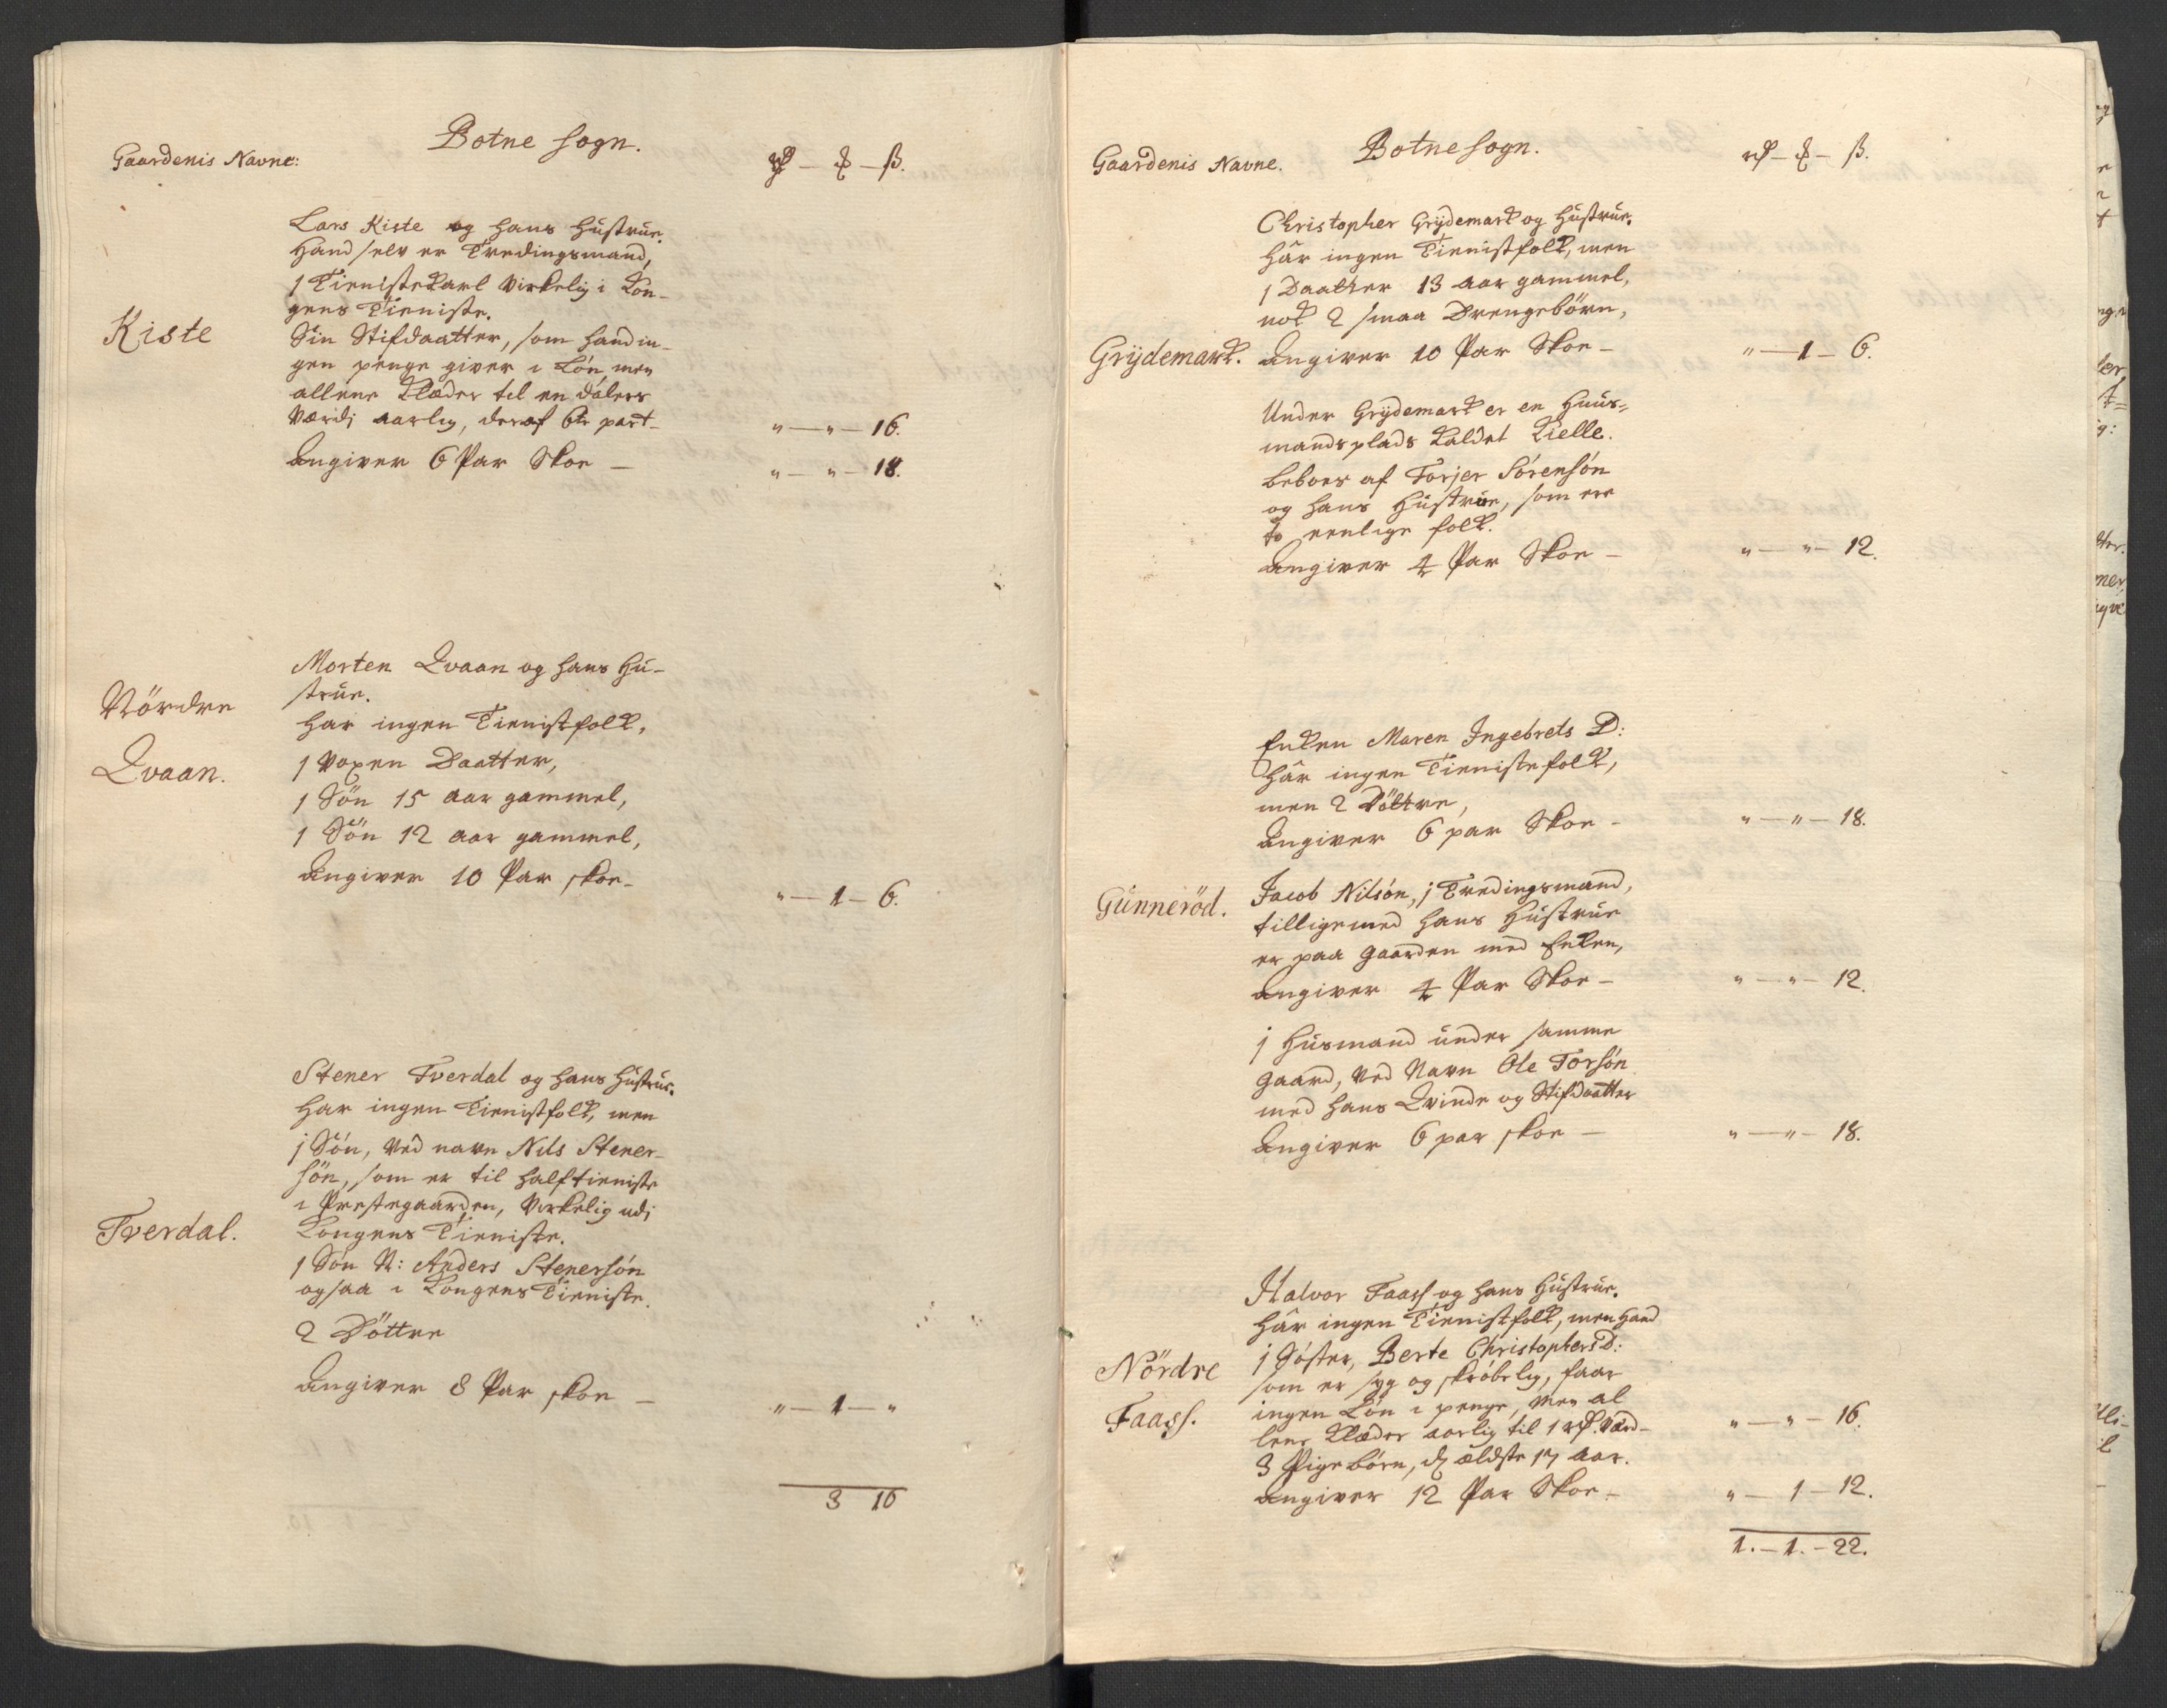 Botne Sogn.
Gaardenis Navne: rd – ₰ – ß.
Lars Kiste og hans Hustrue.
Hand selv er Tredingsmand,
1 Tienistekarl virkelig i Kon-
gens Tieniste.
Kiste
Sin Stifdaatter, som hand in-
gen penge giver i Lön, men
allene Klæder til en dalers
Værdj aarlig, deraf 6te part- „ – „ – 16.
Angiver 6 Par Skoe – „ – „ – 18.
Morten Qvaan og hans Hu-
strue.
Nördre
har ingen Tienistfolk,
Qvaan.
1 voxen Daatter,
1 Sön 15 aar gammel,
1 Sön 12 aar gammel,
Angiver 10 Par skoe- „ – 1 – 6.
Stener Tverdal og hans Hustrue.
har ingen Tienistfolk, men
j Sön, ved navn Nils Stener-
sön, som er til halftieniste
i Prestegaarden, virkelig udj
Tverdal.
Kongens Tieniste.
1 Sön N: Anders Stenersön
ogsaa i Kongens Tieniste.
2 Döttre
Angiver 8 Par skoe – „ – 1 – „
3 16
Botne Sogn.
Gaardenis Navne. rd – ₰ – ß.
Christopher Grydemark og Hustrue.
har ingen Tienistfolk, men
1 Daatter 13 aar gammel,
nok 2 smaa Drengebörn,
Grydemark. Angiver 10 Par Skoe – „ – 1 – 6.
Under Grydemark er en Huus-
mandsplads kaldet Kielle.
beboes af Torjer Sörensön
og hans Hustrue, som ere
to eenlige folk.
Angiver 4 Par Skoe – „ – „ – 12.
Enken Maren Ingebrets D:
har ingen Tienistefolk,
men 2 Döttre,
Angiver 6 par Skoe – „ – „ – 18.
Gunneröd. Jacob Nilsön, j Tredingsmand,
tilligemed hans Hustrue
er paa gaarden med Enken,
Angiver 4 Par Skoe – „ – „ – 12.
j Husmand under samme
gaard, ved Navn Ole Torsön
med hans Qvinde og Stifdaatter
Angiver 6 par skoe – „ – „ – 18.
Halvor Faass og hans Hustrue.
har ingen Tienistfolk, men hand
j Söster, Berte Christophers D:
Nördre
som er syg og skröbelig, faar
Faass.
ingen Lön i penge, men al
lene Klæder aarlig til 1 rd. Værd- „ – „ – 16.
3 Pigebörn, d ældste 17 aar.
Angiver 12 Par Skoe – „ – 1 – 12.
1. – 1. – 22.